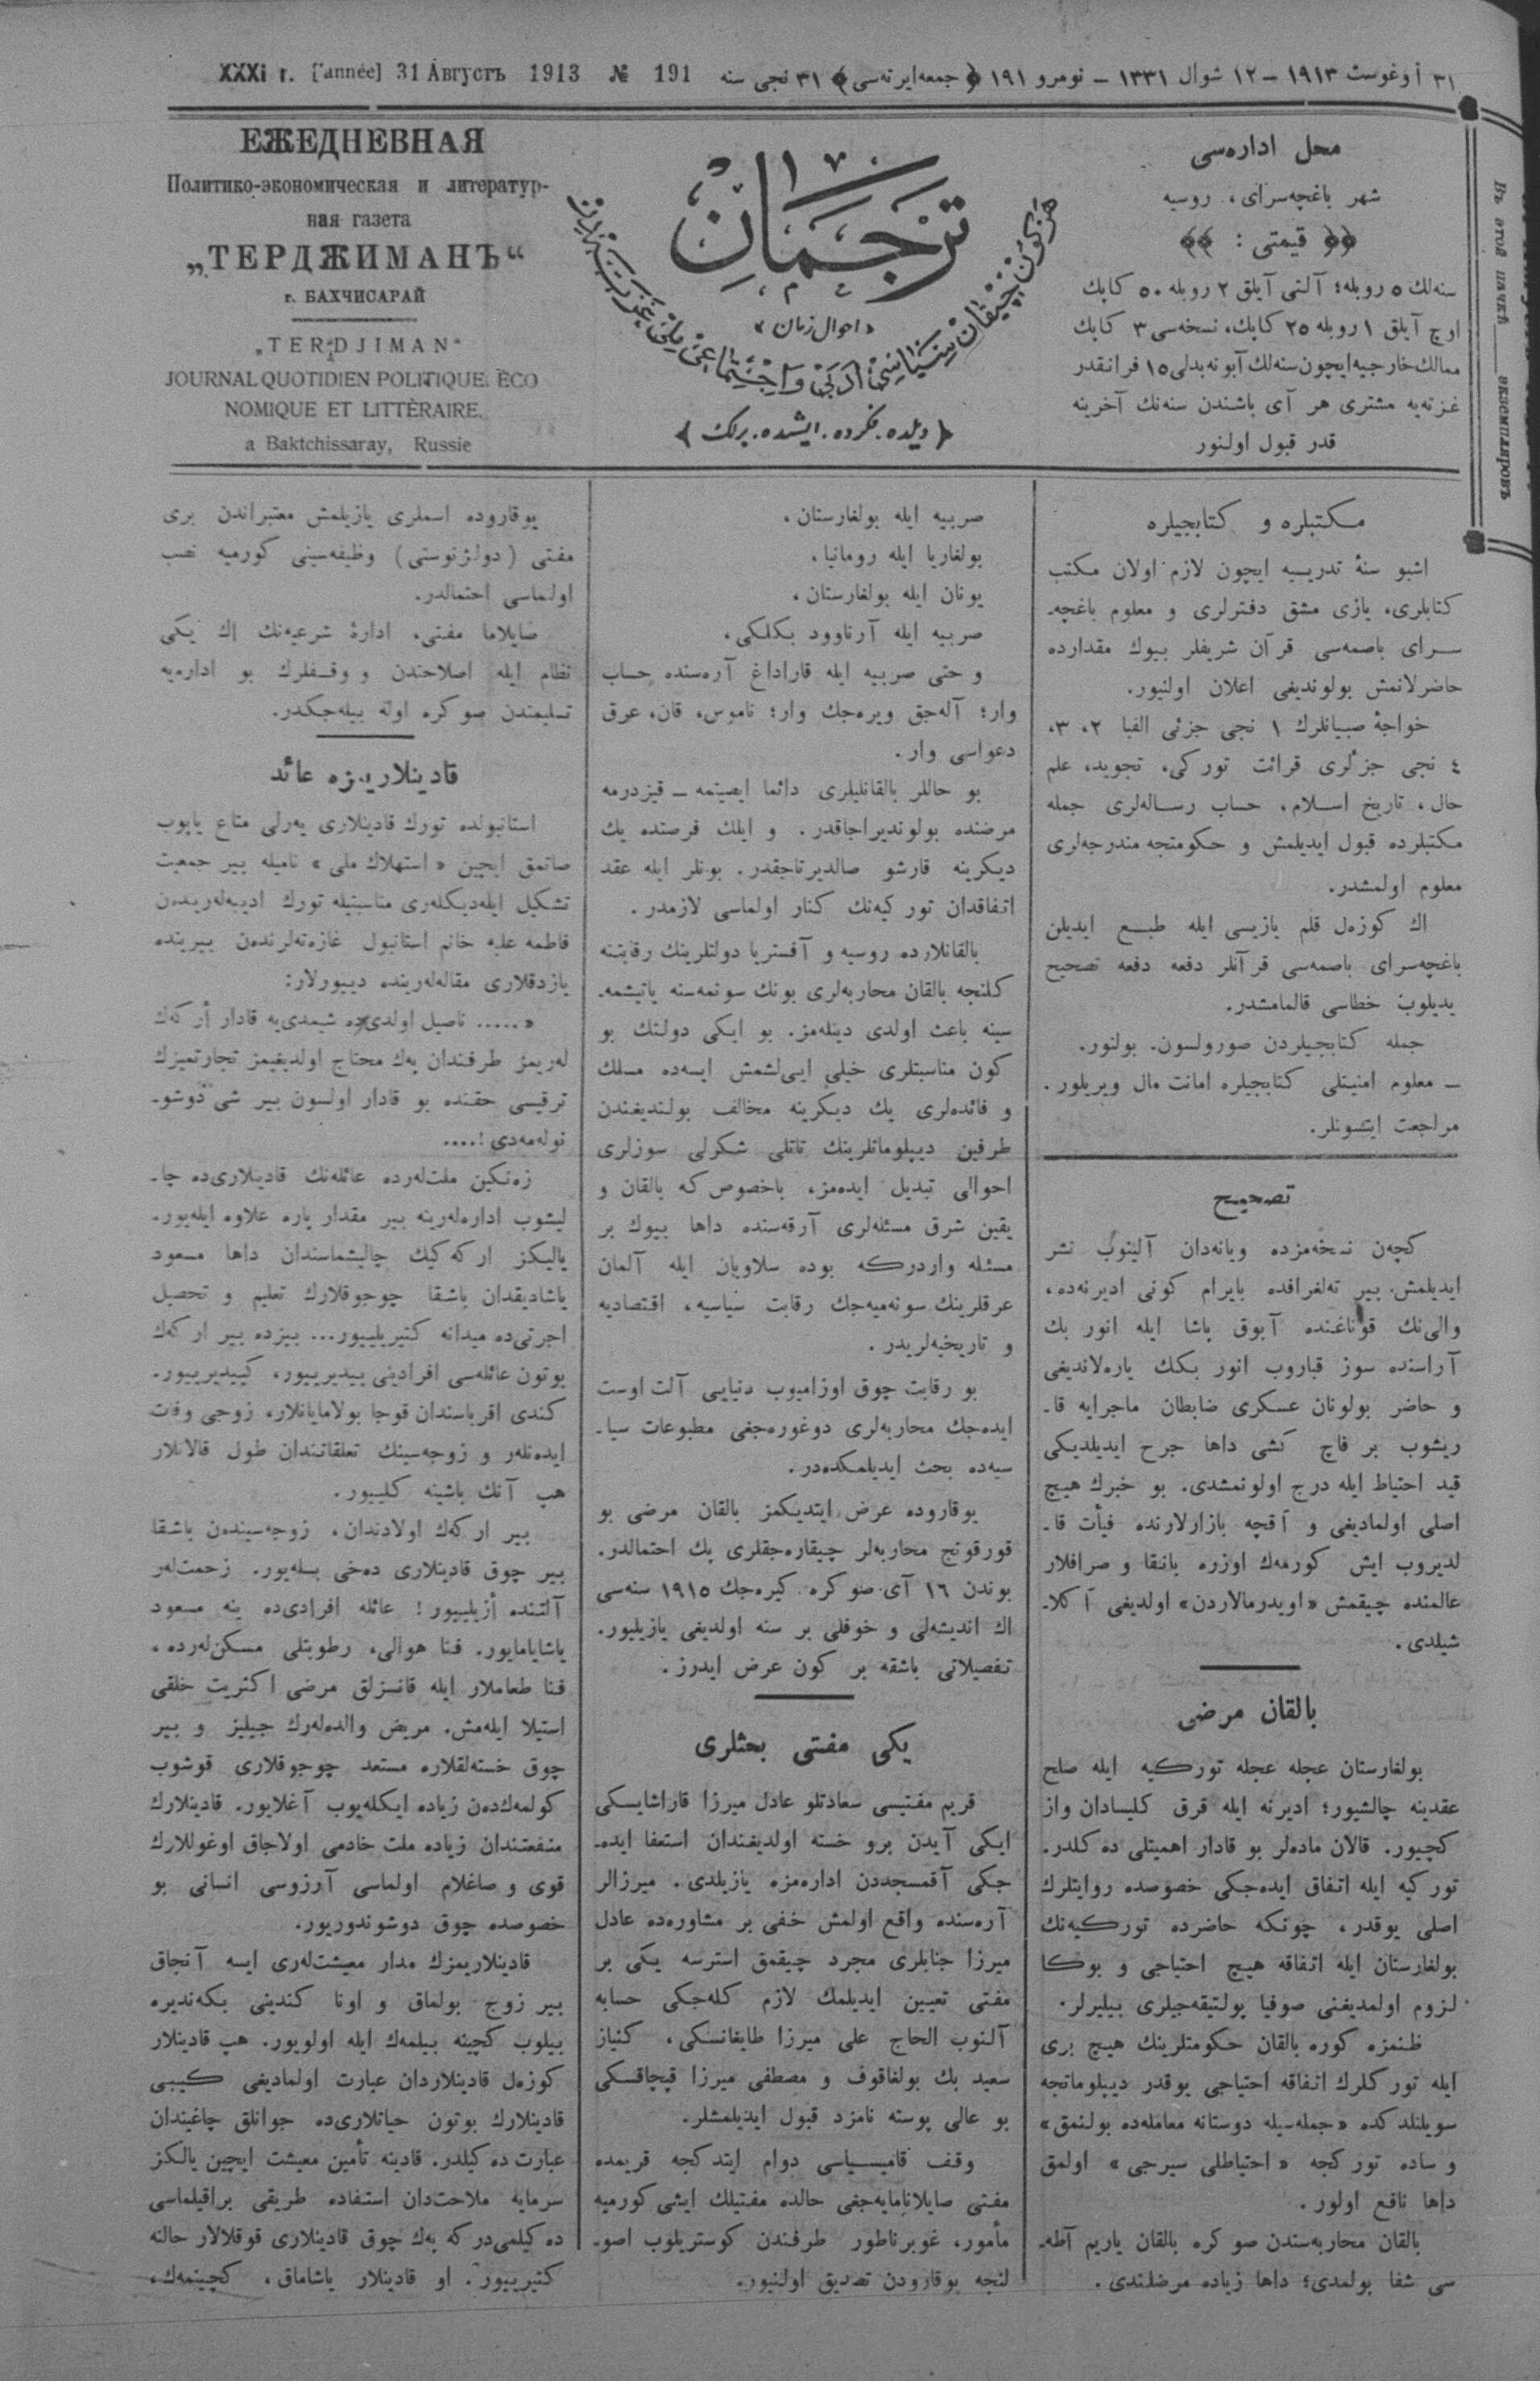 XXXI г. [année] 31 Августъ 1913 № 191
٣١ آوغوست ١٩١٣ – ١٢ شوال ١٣٣١ – نومرو ١٩١ ﴿ جمعه‌ايرته‌سى ﴾ ٣١ نجى سنه
ЕЖЕДНЕВНАЯ
Политико-экономическая и литератур-
ная газета
„ТЕРДЖИМАНЪ“
г. БАХЧИСАРАЙ
„TERDJIMAN“
JOURNAL QUOTIDIEN POLITIQUE. ÈCO
NOMIQUE ET LITTÈRAIRE.
a Baktchissaray, Russie
ترجمان
«احوال زمان»
هر كون چيقان سياسى، ادبى و اجتماعى ملى غزته‌در
﴿ ديلده. فكرده. ايشده. برلك ﴾
محل اداره‌سى
شهر باغچه‌سراى، روسيه
﴿﴿ قيمتى : ﴾﴾
سنه‌لك ٥ روبله؛ آلتى آيلق ٢ روبله ٥٠ كاپك
اوچ آيلق ١ روبله ٢٥ كاپك، نسخه‌سى ٣ كاپك
ممالك خارجيه ايچون سنه‌لك آبونه بدلى ١٥ فرانقدر
غزته‌يه مشترى هر آى باشندن سنه‌نك آخرينه
قدر قبول اولنور
Въ этой пачкѣ ____ экземпляровъ
مكتبلره و كتابجيلره
اشبو سنۀ تدريسيه ايچون لازم اولان مكتب
كتابلرى، يازى مشق دفترلرى و معلوم باغچه‌ـ
سراى باصمه‌سى قرآن شريفلر بيوك مقدارده
حاضرلانمش بولونديغى اعلان اولنيور.
خواجۀ صبيانلرك ١ نجى جزئى الفبا ٢، ٣،
٤ نجى جزلرى قرائت توركى، تجويد، علم
حال، تاريخ اسلام، حساب رساله‌لرى جمله
مكتبلرده قبول ايديلمش و حكومتجه مندرجه‌لرى
معلوم اولمشدر.
اك كوزه‌ل قلم يازيسى ايله طبع ايديلن
باغچه‌سراى باصمه‌سى قرآنلر دفعه دفعه تصحيح
يديلوب خطاسى قالمامشدر.
جمله كتابجيلردن صورولسون. بولنور.
– معلوم امنيتلى كتابجيلره امانت مال ويريلور.
مراجعت ايتسونلر.
تصحيح
كچه‌ن نسخه‌مزده ويانه‌دان آلينوب نشر
ايديلمش بير ته‌لغرافده بايرام كونى اديرنه‌ده،
والى‌نك قوناغنده آبوق پاشا ايله انور بك
آراسنده سوز قباروب انور بكك ياره‌لانديغى
و حاضر بولونان عسكرى ضابطان ماجرايه قاـ
ريشوب بر قاچ كشى داها جرح ايديلديكى
قيد احتياط ايله درج اولونمشدى. بو خبرك هيچ
اصلى اولماديغى و آقچه بازارلارنده فيأت قاـ
لديروب ايش كورمه‌ك اوزره بانقا و صرافلار
عالمنده چيقمش «اويدرمالاردن» اولديغى آكلاـ
شيلدى.
بالقان مرضى
بولغارستان عجله عجله توركيه ايله صلح
عقدينه چالشيور؛ اديرنه ايله قرق كليسادان واز
كچيور. قالان ماده‌لر بو قادار اهميتلى ده كلدر.
توركيه ايله اتفاق ايده‌جكى خصوصده روايتلرك
اصلى يوقدر، چونكه حاضرده توركيه‌نك
بولغارستان ايله اتفاقه هيچ احتياجى و بوكا
لزوم اولمديغنى صوفيا پولتيقه‌جيلرى بيليرلر.
ظنمزه كوره بالقان حكومتلرينك هيچ برى
ايله توركلرك اتفاقه احتياجى يوقدر ديپلوماتجه
سويلنلدكده «جمله‌سيله دوستانه معامله‌ده بولنمق»
و ساده توركجه «احتياطلى سيرجى» اولمق
داها نافع اولور.
بالقان محاربه‌سندن صوكره بالقان ياريم آطه‌ـ
سى شفا بولمدى؛ داها زياده مرضلندى.
صربيه ايله بولغارستان،
بولغاريا ايله رومانيا،
يونان ايله بولغارستان،
صربيه ايله آرناوود بكلكى،
و حتى صربيه ايله قاراداغ آره‌سنده حساب
وار؛ آله‌جق ويره‌جك وار؛ ناموس، قان، عرق
دعواسى وار.
بو حاللر بالقانليلرى دائما ايصيتمه – قيزدرمه
مرضنده بولونديراجاقدر. و ايلك فرصتده يك
ديكرينه قارشو صالديرتاجقدر. بونلر ايله عقد
اتفاقدان توركيه‌نك كنار اولماسى لازمدر.
بالقانلارده روسيه و آفستريا دولتلرينك رقابتنه
كلنجه بالقان محاربه‌لرى بونك سونمه‌سنه ياتيشمه‌ـ
سينه باعث اولدى دينله‌مز. بو ايكى دولتك بو
كون مناسبتلرى خيلى ايى‌لشمش ايسه‌ده مسلك
و فائده‌لرى يك ديكرينه مخالف بولنديغندن
طرفين ديپلوماتلرينك تاتلى شكرلى سوزلرى
احوالى تبديل ايده‌مز، باخصوص كه بالقان و
يقين شرق مسئله‌لرى آرقه‌سنده داها بيوك بر
مسئله واردركه بوده سلاويان ايله آلمان
عرقلرينك سونه‌ميه‌جك رقابت سياسيه، اقتصاديه
و تاريخيه‌لريدر.
بو رقابت چوق اوزاميوب دنيايى آلت اوست
ايده‌جك محاربه‌لرى دوغوره‌جغى مطبوعات سياـ
سيه‌ده بحث ايديلمكده‌در.
يوقاروده عرض ايتديكمز بالقان مرضى بو
قورقونج محاربه‌لر چيقاره‌جقلرى بك احتمالدر.
بوندن ١٦ آى صوكره كيره‌جك ١٩١٥ سنه‌سى
اك انديشه‌لى و خوفلى بر سنه اولديغى يازيليور.
تفصيلاتى باشقه بر كون عرض ايدرز.
يكى مفتى بحثلرى
قريم مفتيسى سعادتلو عادل ميرزا قاراشايسكى
ايكى آيدن برو خسته اولديغندان استعفا ايده‌ـ
جكى آقمسجددن اداره‌مزه يازيلدى. ميرزالر
آره‌سنده واقع اولمش خفى بر مشاوره‌ده عادل
ميرزا جنابلرى مجرد چيقمق استرسه يكى بر
مفتى تعيين ايديلمك لازم كله‌جكى حسابه
آلنوب الحاج على ميرزا طايغانسكى، كنياز
سعيد بك بولغاقوف و مصطفى ميرزا قپچاقسكى
بو عالى پوسته نامزد قبول ايديلمشلر.
وقف قاميسياسى دوام ايتدكجه قريمده
مفتى صايلانامايه‌جغى حالده مفتيلك ايشى كورميه
مأمور، غوبرناطور طرفندن كوستريلوب اصوـ
لنجه يوقارودن تصديق اولنيور.
يوقاروده اسملرى يازيلمش معتبراندن برى
مفتى (دولژنوستى) وظيفه‌سينى كورميه نصب
اولنماسى احتمالدر.
صايلاما مفتى، ادارۀ شرعيه‌نك اك يكى
نظام ايله اصلاحندن و وقفلرك بو اداره‌يه
تسليمندن صوكره اوله بيله‌جكدر.
قادينلاريمزه عائد
استانبولده تورك قادينلارى يه‌رلى متاع ياپوب
صاتمق ايچين «استهلاك ملى» ناميله بير جمعيت
تشكيل ايله‌ديكله‌رى مناسبتيله تورك اديبه‌له‌رينده‌ن
فاطمه عليه خانم استانبول غازه‌ته‌لرنده‌ن بيرينده
يازدقلارى مقاله‌له‌رينده دييورلار:
«..... ناصيل اولدى‌ده شيمدى‌يه قادار أركه‌ك
له‌ريمز طرفندان پك محتاج اولديغيمز تجارتميزك
ترقيسى حقنده بو قادار اولسون بير شى دوشوـ
نوله‌مه‌دى!....
زه‌نكين ملت‌له‌رده عائله‌نك قادينلارى‌ده چاـ
ليشوب اداره‌له‌رينه بير مقدار پاره علاوه ايله‌يور.
يالكز اركه‌كيك چاليشماسندان داها مسعود
ياشاديقدان باشقا چوجوقلارك تعليم و تحصيل
اجرتى‌ده ميدانه كتيريلييور... بيزده بير اركه‌ك
بوتون عائله‌سى افرادينى ييديرييور، كييديرييور.
كندى اقرباسندان قوجا بولامايانلار، زوجى وفات
ايده‌نله‌ر و زوجه‌سينك تعلقاتندان طول قالانلار
هپ آنك باشينه كلييور.
بير اركه‌ك اولادندان، زوجه‌سينده‌ن باشقا
بير چوق قادينلارى ده‌خى بسله‌يور. زحمت‌لر
آلتنده أزيلييور! عائله افرادى‌ده ينه مسعود
ياشايامايور. فنا هوالى، رطوبتلى مسكن‌له‌رده،
فنا طعاملار ايله قانسزلق مرضى اكثريت خلقى
استيلا ايله‌مش. مريض والده‌له‌رك جيليز و بير
چوق خسته‌لقلاره مستعد چوجوقلارى قوشوب
كولمه‌كده‌ن زياده ايكله‌يوب آغلايور. قادينلارك
منفعتندان زياده ملت خادمى اولاجاق اوغوللارك
قوى و صاغلام اولماسى آرزوسى انسانى بو
خصوصده چوق دوشوندوريور.
قادينلاريمزك مدار معيشت‌له‌رى ايسه آنجاق
بير زوج بولماق و اونا كندينى بكه‌نديره
بيلوب كچينه بيلمه‌ك ايله اولويور. هپ قادينلار
كوزه‌ل قادينلاردان عبارت اولماديغى كيبى
قادينلارك بوتون حياتلارى‌ده جوانلق چاغيندان
عبارت ده كيلدر. قادينه تأمين معيشت ايچين يالكز
سرمايه ملاحتدان استفاده طريقى براقيلماسى
ده كيلمى‌دركه پك چوق قادينلارى قوقلالار حالنه
كتيرييور. او قادينلار ياشاماق، كچينمه‌ك،